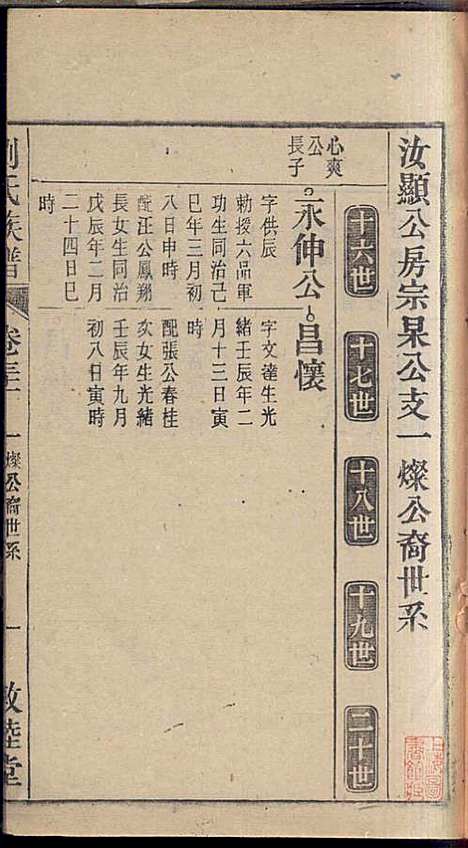 汝顯公房宗杲公支一燦公裔世系
十六世
十七世
十八世
十九世
二十世
心爽
公
長子
永仲公
昌懷
字供辰
勅授六品軍
功生同治己
巳年三月初
八日申時
配汪公鳳翔
長女生同治
戊辰年二月
二十四日巳
時
字文達生光
緒壬辰年二
月十三日寅
時
配張公春桂
次女生光緒
壬辰年九月
初八日寅時
劉氏族譜
卷三十一
一燦公裔世系
一
敦睦堂